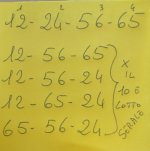 1 2 3 4
12-24-56-65
12-56-65
12-56-24
12-65-24
65-56-24
X
IL
10 E
LOTTO
SERALE